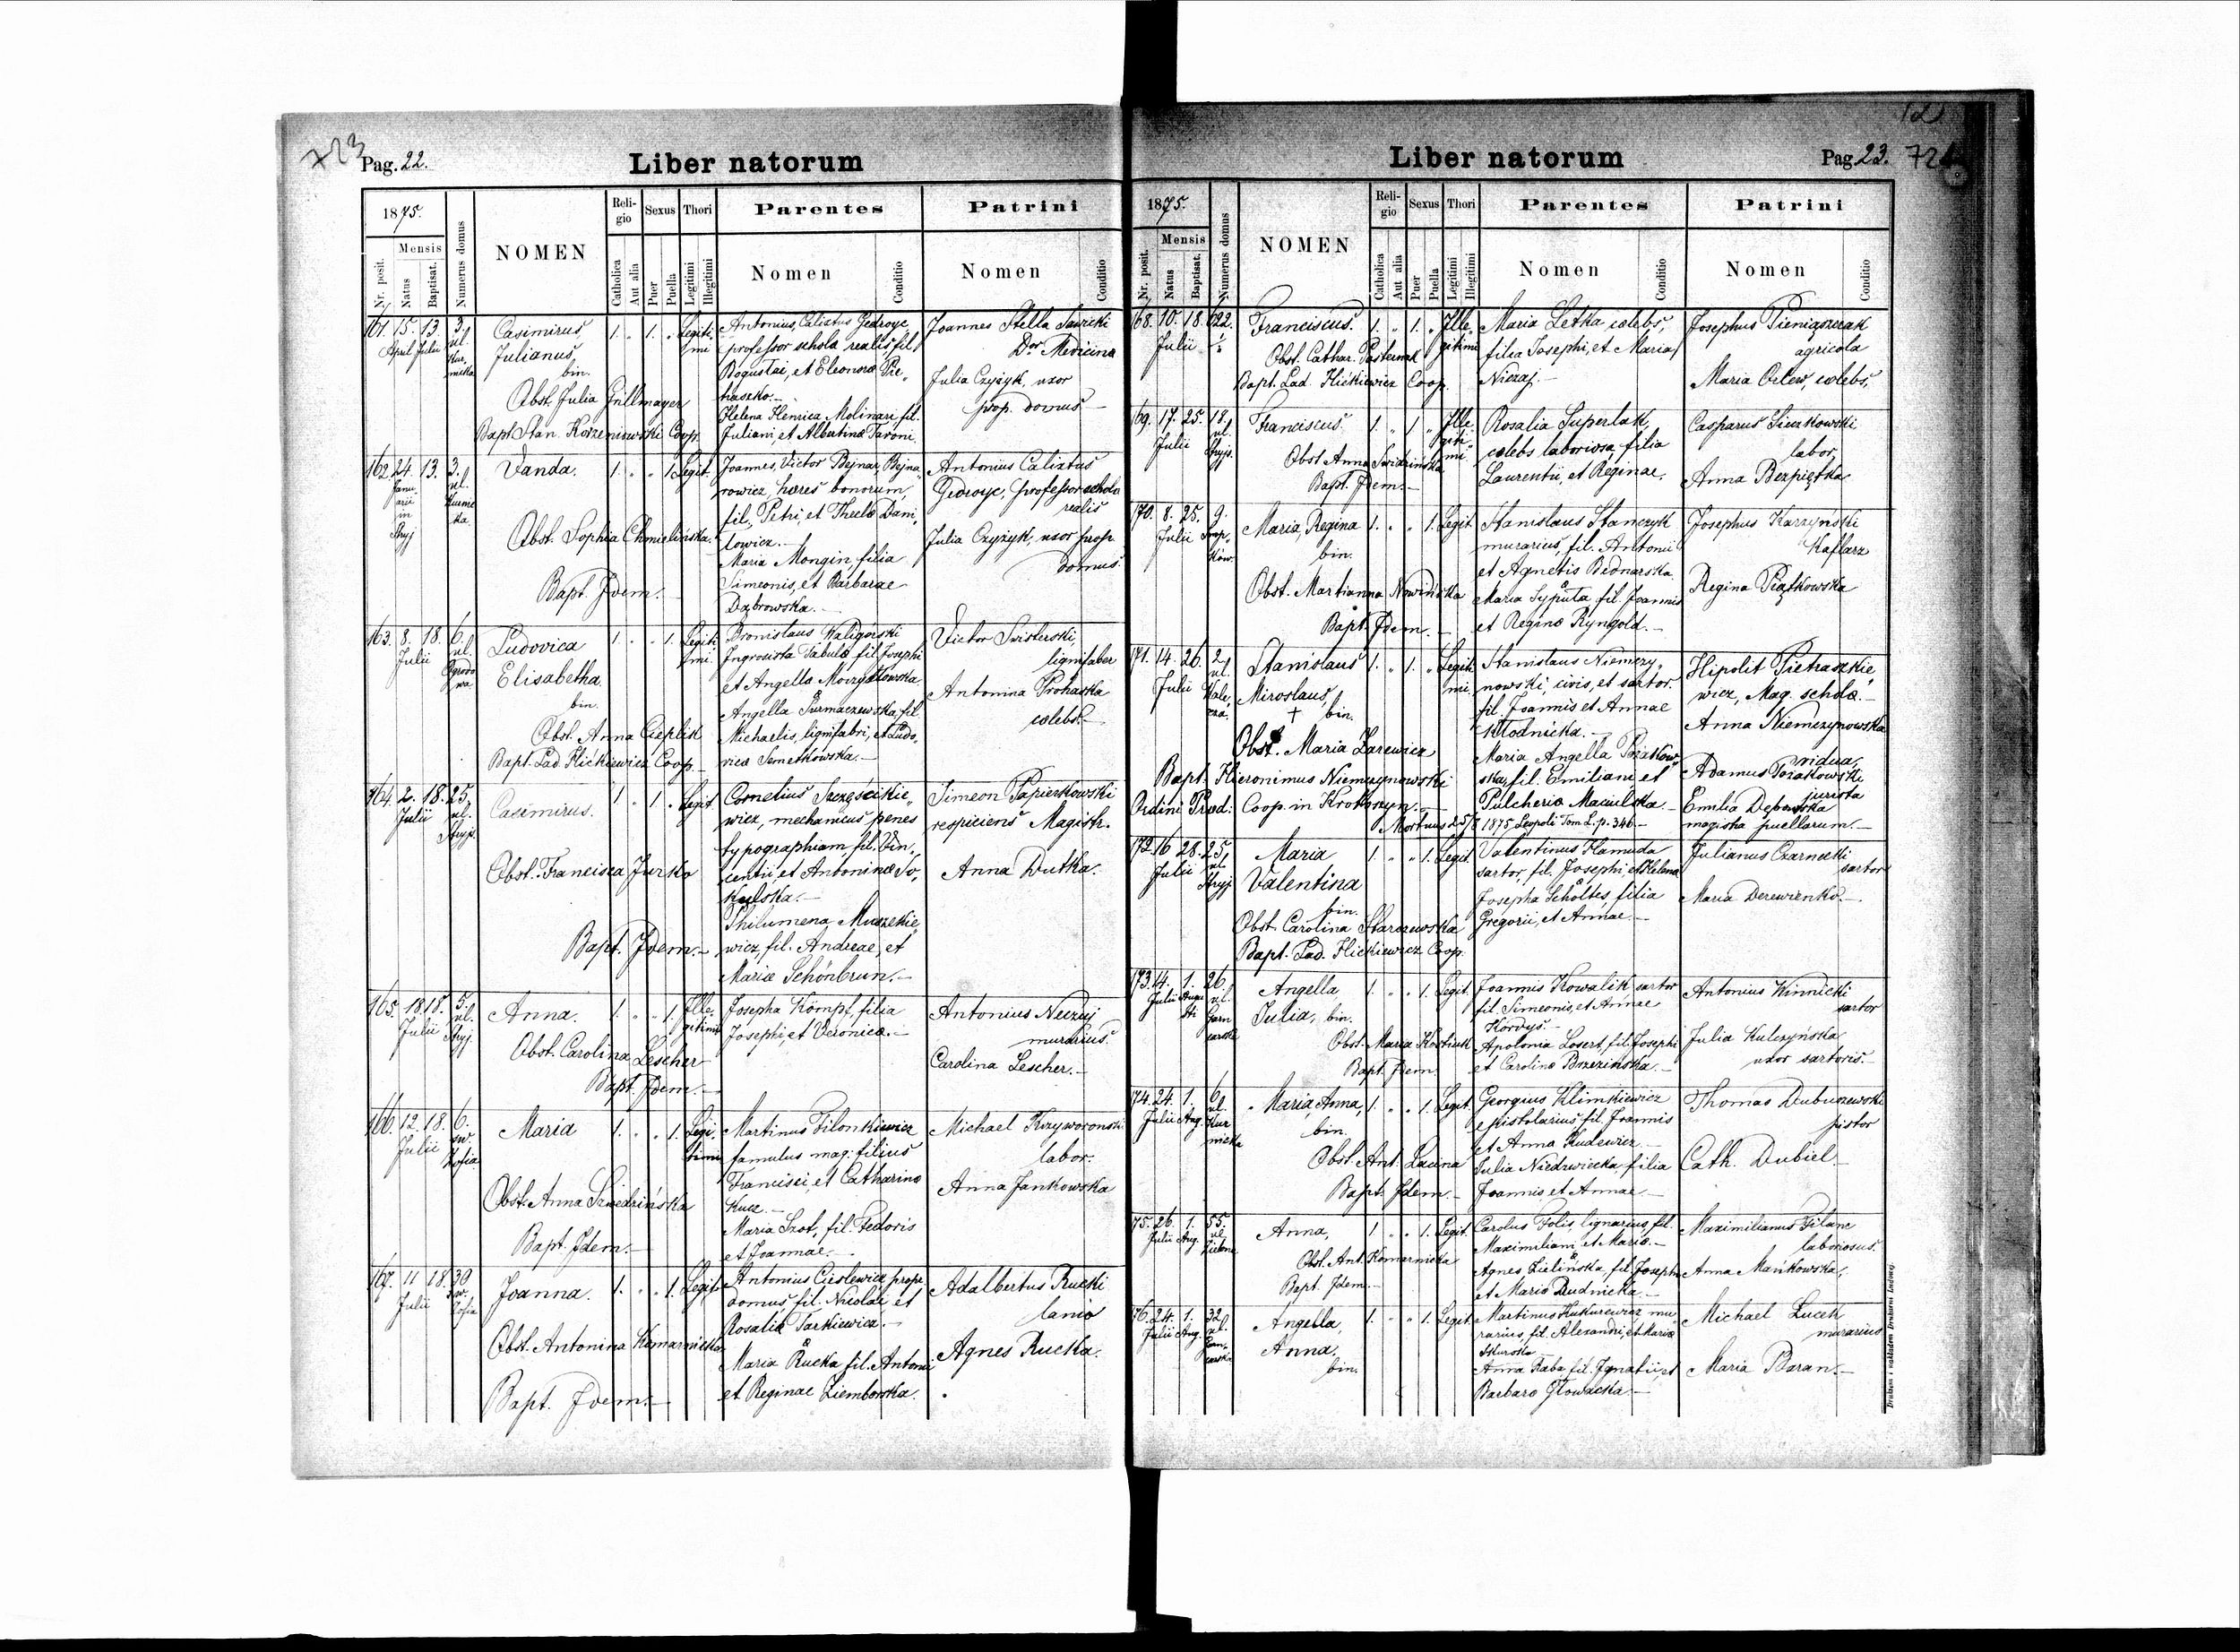 723
Pag. 22.
Liber natorum
1875.
Mensis
Nr. posit.
Natus
Baptisat.
Numerus domus
NOMEN
Reli-
gio
Catholica
Aut alia
Sexus
Puer
Puella
Thori
Legitimi
Illegitimi
Parentes
Nomen
Conditio
Patrini
Nomen
Conditio
161. 15. 13. 3.
April Julii ul.
Casimirus
Julianus
bin.
1. " 1. " Legiti-
mi
Obst. Julia Grillmayer
Bapt. Stan. Korzeniowski Coop.
Antonius, Calixtus Gedroyc
professor schola realis, fil.
Bogustai, et Eleonora Pie-
traszko.-
Helena Henrica Molinari fil.
Juliani, et Albertina Taroni
Joannes Stella Sawicki
Dor Medicina
Julia Czyżyk, uxor
prop. domus
162. 24. 13. 3.
Janu
arii
in
Stryj
ul.
Vanda.
1. " " 1. Legit.
Obst. Sophia Chmielińska.
Bapt. Idem.-
Joannes, Victor Bejnar, Bejna-
rowicz, haeres bonorum,
fil. Petri, et Thecla Dani-
lowicz.-
Maria Mongin, filia
Simeonis, et Barbarae
Dąbrowska.-
Antonius Calixtus
Gedroyc, professor schola
realis
Julia Czyżyk, uxor prop.
domus.
163. 8. 18. 6.
Julii ul.
Ogrodo
wa
Ludovica
Elisabetha
bin.
1. " " 1. Legiti-
mi
Obst. Anna Cieplik
Bapt. Lad Hićkiewicz Coop.-
Bronislaus Kaligorski
Ingrosista Tabula fil. Josephi
et Angella
Angella Surmaczewska, fil.
Michaelis, lignifabri, et Ludo-
vica Semetkowska.-
Victor Swisterski,
lignifaber
Antonina Prohaska
coelebs.-
164. 2. 18. 25.
Julii ul.
Stryjs.
Casimirus.
1 " 1. " Legit.
Obst. Francisca Jurko
Bapt. Idem.-
Cornelius Szczęścikie-
wicz, mechanicus penes
typographiam fil. Vin-
centii, et Antonina So-
kulska.-
Philumena
wicz, fil. Andreae, et
Maria Schönbrun.-
Simeon Papierkowski
respiciens Magistr.
Anna Dutka.
165. 18. 18. 5.
Julii ul.
Stryj.
Anna.
1. " " 1. Ille-
gitimi
Obst. Carolina Lescher
Bapt. Idem.-
Josepha Kömpf, filia
Josephi, et Veronica.-
Antonius
murarius.
Carolina Lescher.-
166. 12. 18. 6.
Julii św.
Zofia
Maria
1. " " 1. Legi-
timi
Obst. Anna Szwedzińska
Bapt. Idem.-
Martinus Filonkiewicz
famulus mag: filius
Francisci, et Catharina
Kucz.-
Maria Szot, fil. Fedoris
et Joannae.-
Michael Krzyworonski
labor.
Anna Jankowska
167. 11 18. 30
Julii św.
Zofia
Joanna.
1. " " 1. Legit.
Obst. Antonina Kamarnicka
Bapt. Idem.-
Antonius Cieslewicz, propr.
domus, fil. Nicolai et
Rosalia Tarkiewicz.-
Maria Rucka fil. Antonii
et Reginae Ziemborska.
Adalbertus Rucki
lanio
Agnes Rucka.
Liber natorum
Pag. 23.
1875.
Mensis
Nr. posit.
Natus
Baptisat.
Numerus domus
NOMEN
Reli-
gio
Catholica
Aut alia
Sexus
Puer
Puella
Thori
Legitimi
Illegitimi
Parentes
Nomen
Conditio
Patrini
Nomen
Conditio
168. 10. 18. 622.
Julii
Franciscus.
1. " 1. " Ille-
gitimi
Obst. Cathar. Pasternak
Bapt. Lad. Hićkiewicz Coop.
Maria Letka coelebs,
filia Josephi, et Maria
Niczaj.-
Josephus Pieniążczak
agricola
Maria Orlew, coelebs,
169. 17. 25. 18.
Julii ul.
Stryjs.
Franciscus.
1. " 1 " Ille-
giti-
mi
Obst. Anna Swidzińska
Bapt. Idem.-
Rosalia Superlak,
coelebs laboriosa, filia
Laurentii, et Reginae.
Casparus Sieczkowski
labor,
Anna Bezpiętka
170. 8. 25. 9.
Julii
Maria, Regina
bin.
1. " " 1. Legit.
Obst. Martianna Nowińska
Bapt. Idem.-
Stanislaus Stanczyk
murarius, fil. Antonii
et Agnetis Bednarska.
Maria Syputa fil. Joannis
et Regina Ryngold.-
Josephus Karzyński
Kaflarz
Regina Piątkowska
171. 14. 26. 2
Julii ul.
Kale-
cza.
Stanislaus
Miroslaus,
† bin.
1. " 1. " Legiti-
mi
Obst. Maria Zarewicz
Bapt. Hieronimus Niemczynowski
Ordini Praed: Coop. in Krotoszyn.-
Mortuus 25/8 1875 Leopoli Tom L. p. 346.-
Stanislaus Niemczy-
nowski, civis, et sartor.
fil. Joannis et Annae
Kłodnicka.-
Maria Angella Pozakow-
ska, fil. Emiliani et
Pulcheria Maciulska.-
Hipolit Pietraszkie-
wicz, Mag. schola.-
Anna Niemczynowska
vidua,
Adamus Pozakowski
jurista
Emilia Dębowska
magistra puellarum.-
172. 16 28. 25.
Julii ul.
Stryj
Maria
Valentina
bin.
1 " " 1. Legit.
Obst. Carolina Starczewska
Bapt. Lad. Hićkiewicz Coop.
Valentinus Hamuda
sartor, fil. Josephi, et Helena
Josepha Scholtes, filia
Gregorii, et Annae.-
Julianus Czarnecki
sartor
Maria Derewienko.-
173. 14. 1. 26.
Julii Augu
sti
ul.
Garn
carska
Angella
Julia, bin.
1. " " 1. Legit.
Obst. Maria
Bapt. Idem.
Joannis Kowalik sartor
fil. Simeonis, et Annae
Kordys.-
Apolonia Losert, fil. Josephi
et Carolina Brzezińska.-
Antonius Winnicki
sartor
Julia Kulczyńska
uxor sartoris.-
174. 24. 1. 6.
Julii Aug. ul.
Kur
nicka
Maria, Anna,
bin.
1. " " 1. Legit.
Obst. Ant. Lacina
Bapt. Idem.-
Georgius Klimkiewicz
epistolarius fil. Joannis
et Anna Rudewicz.-
Julia Niedzwiecka, filia
Joannis et Annae.-
Thomas Dubuszewski
pistor
Cath. Dubiel.-
175. 26. 1. 55.
Julii Aug. ul.
Zielona
Anna,
1 " " 1. Legit.
Obst. Ant. Komarnicka
Bapt. Idem.-
Carolus Folis, lignarius, fil.
Maximiliani, et Maria.-
Agnes Zielińska, fil. Josephi
et Maria Rudnicka.-
Maximilianus Filanc
laboriosus.
Anna Mańkowska,
176. 24. 1. 32
Julii Aug. ul.
Garn-
carska
Angella,
Anna.
bin.
1. " " 1. Legit.
Martinus Kukurewicz mu-
rarius, fil. Alexandri, et Maria
Skurska
Anna Raba fil. Ignatii, et
Barbara Głowacka.-
Michael Lucek
murarius
Maria Baran.-
Drukiem i nakładem Drukarni Ludowej.